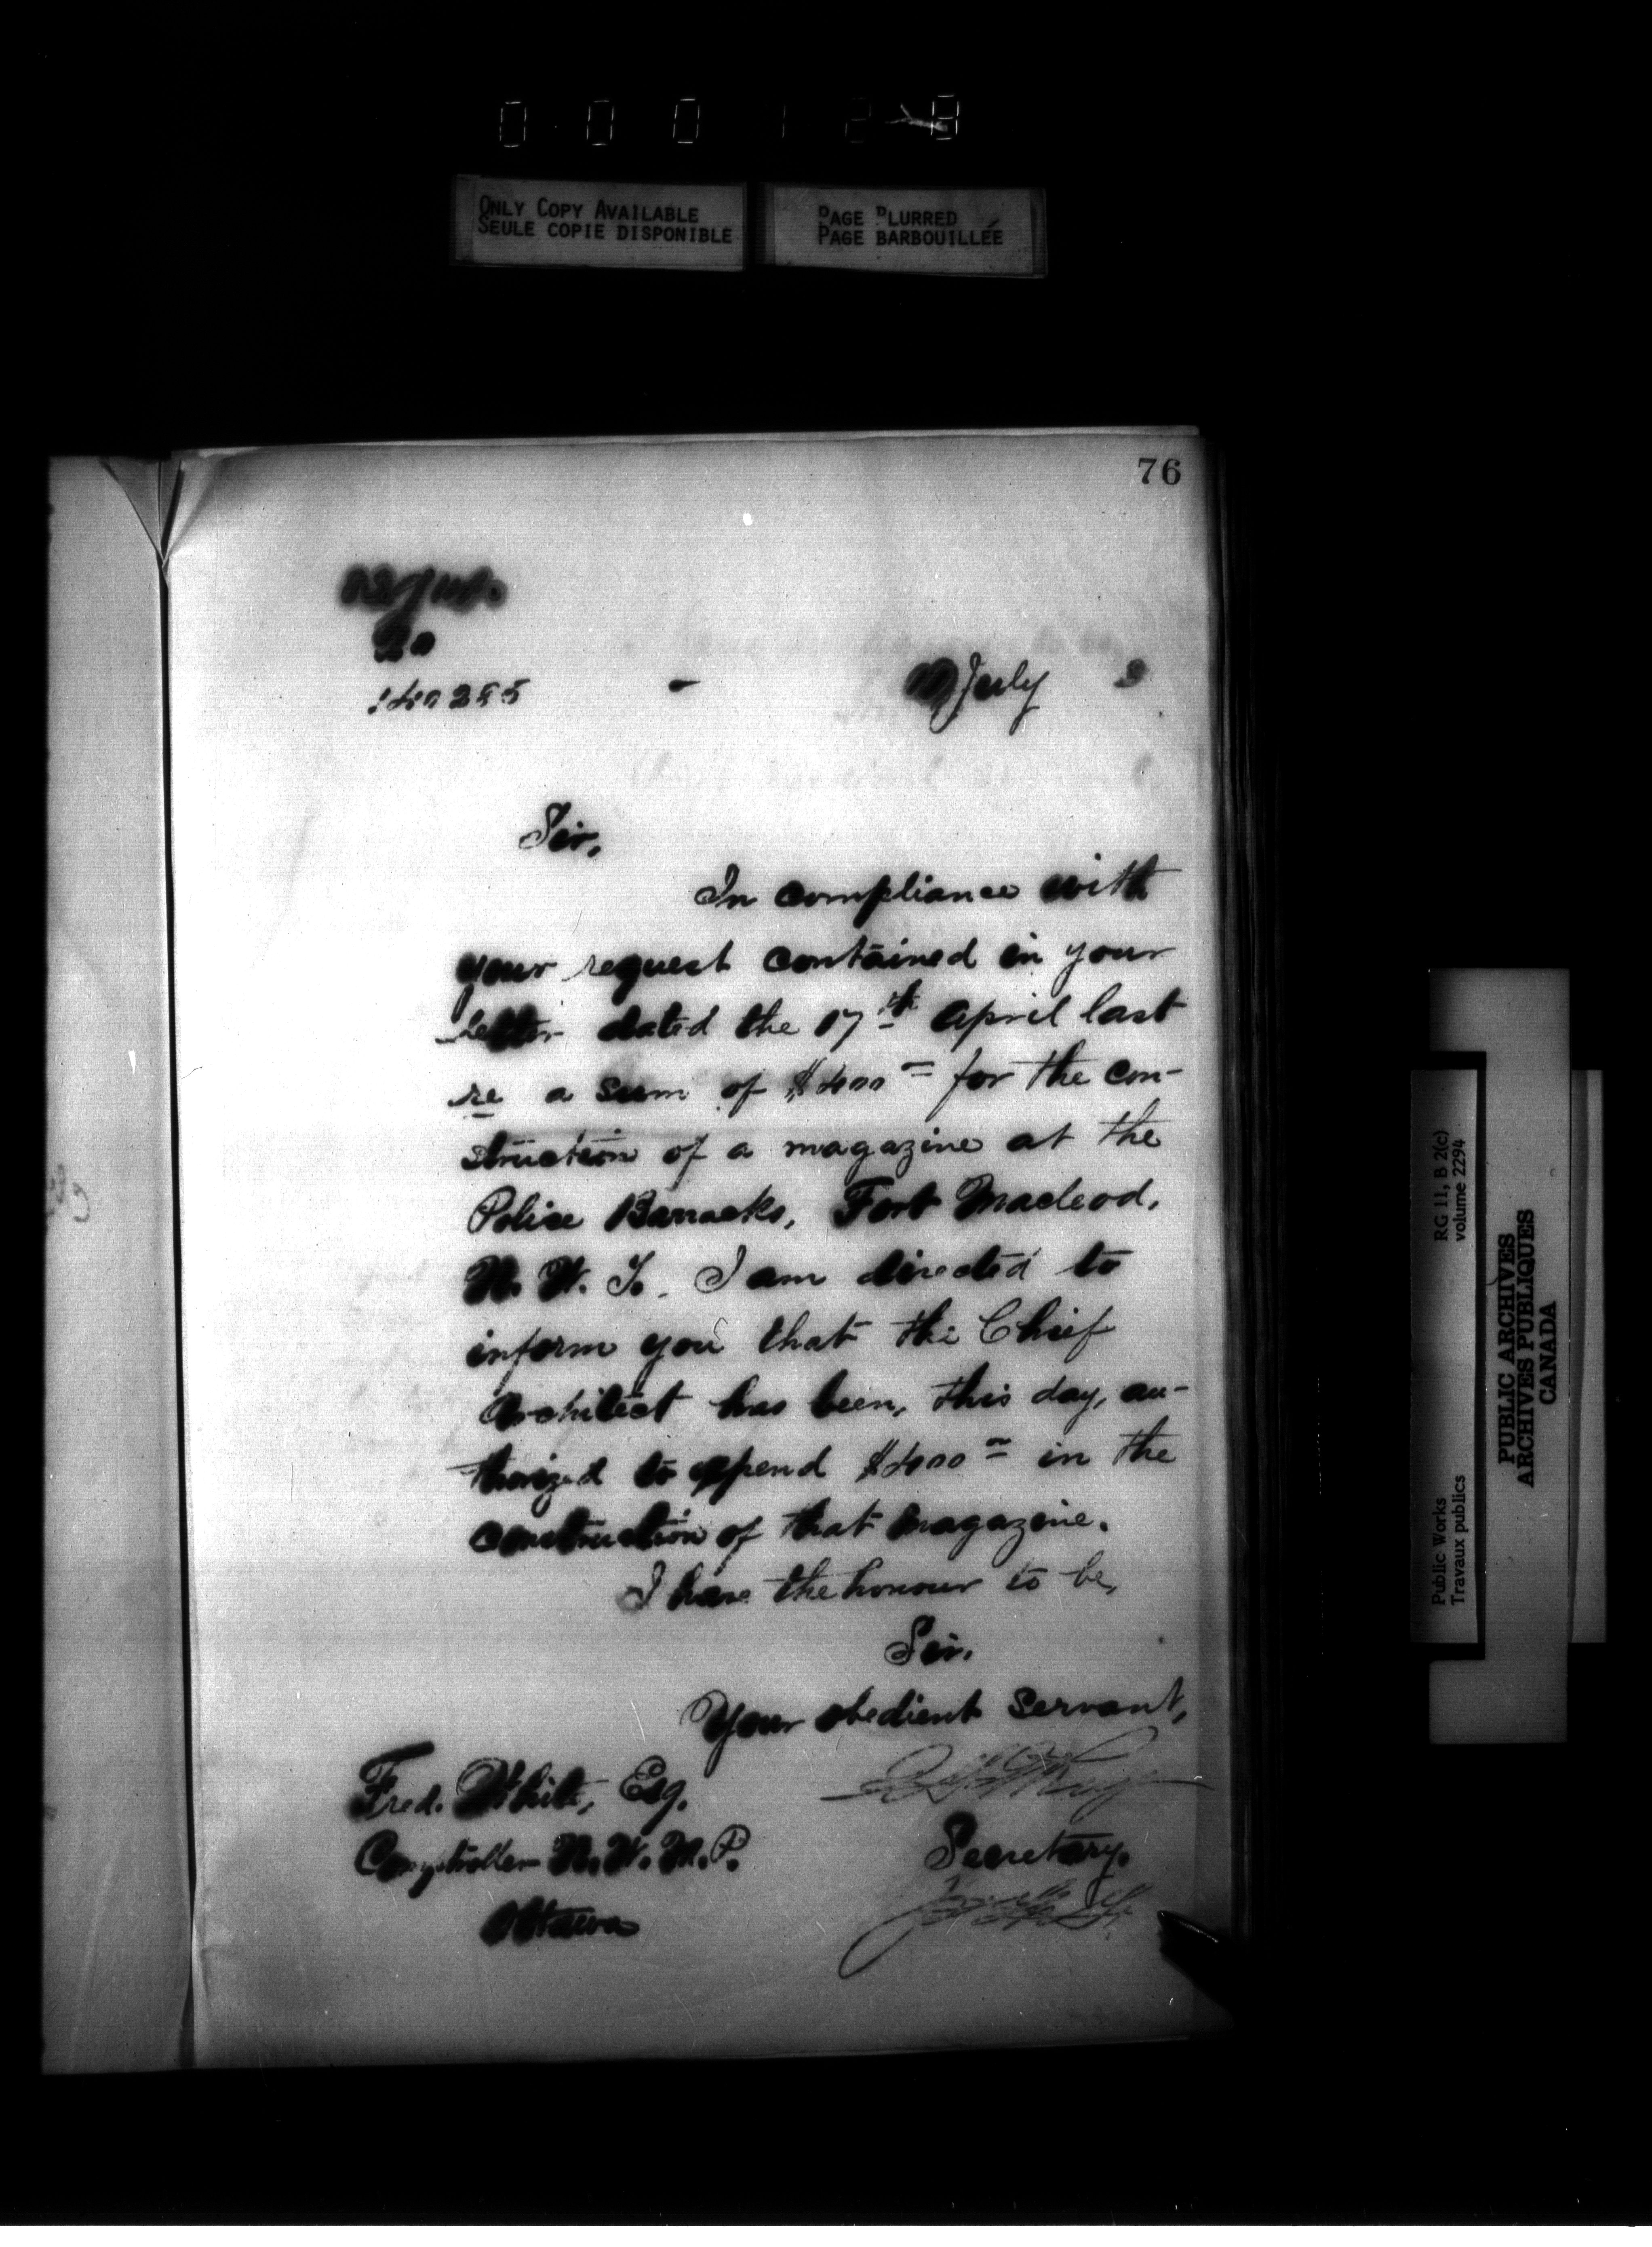 0 0 0 1 2 8
ONLY COPY AVAILABLE
SEULE COPIE DISPONIBLE
PAGE BLURRED
PAGE BARBOUILLÉE
76
July 3
Sir,
In compliance with
your request contained in your
letter dated the 17th April last
re a sum of $400 = for the con-
struction of a magazine at the
Police Barracks, Fort Macleod,
N. W. T. I am directed to
inform you that the Chief
Architect has been, this day, au-
thorized to spend $400 = in the
construction of that magazine.
I have the honour to be,
Sir,
Your obedient servant,
Fred. White, Esq.
Comptroller N. W. M. P.
Ottawa
Secretary.
Public Works
Travaux publics
RG 11, B 2(c)
volume 2294
PUBLIC ARCHIVES
ARCHIVES PUBLIQUES
CANADA